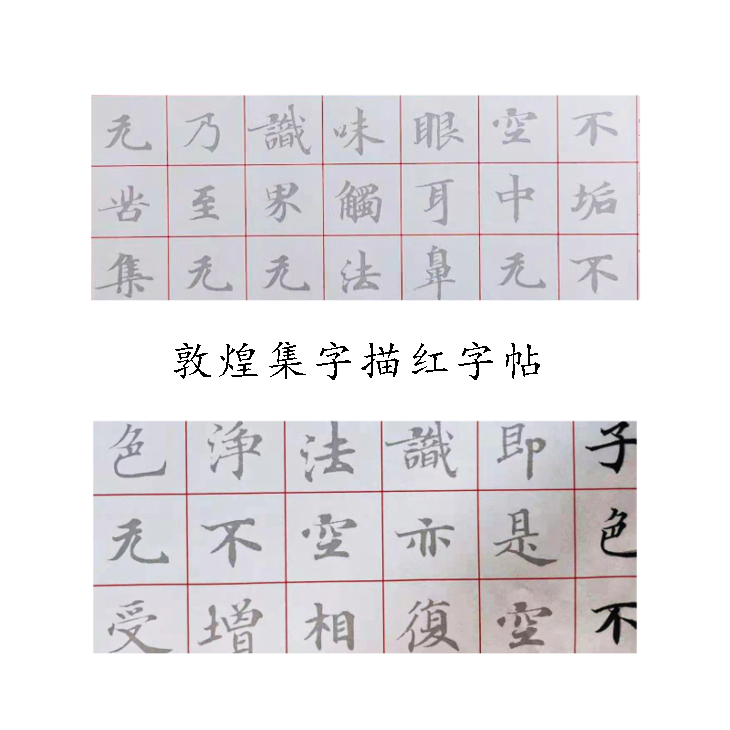 不垢不
空中无
眼耳鼻
味觸法
識界无
乃至无
无苦集
敦煌集字描红字帖
子色不
即是空
識亦復
法空相
淨不增
色无受